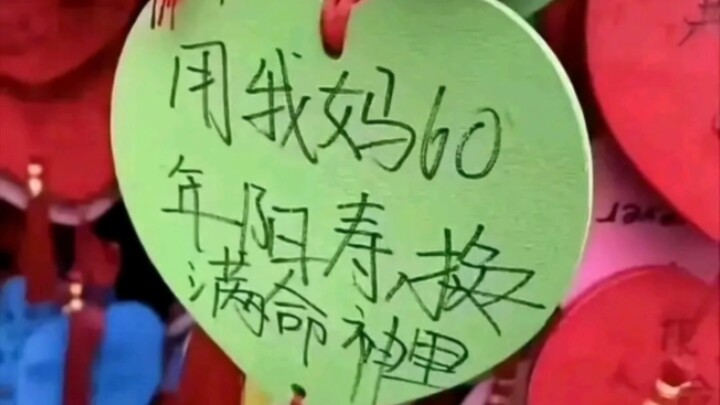 用我妈60
年阳寿换
满命神里